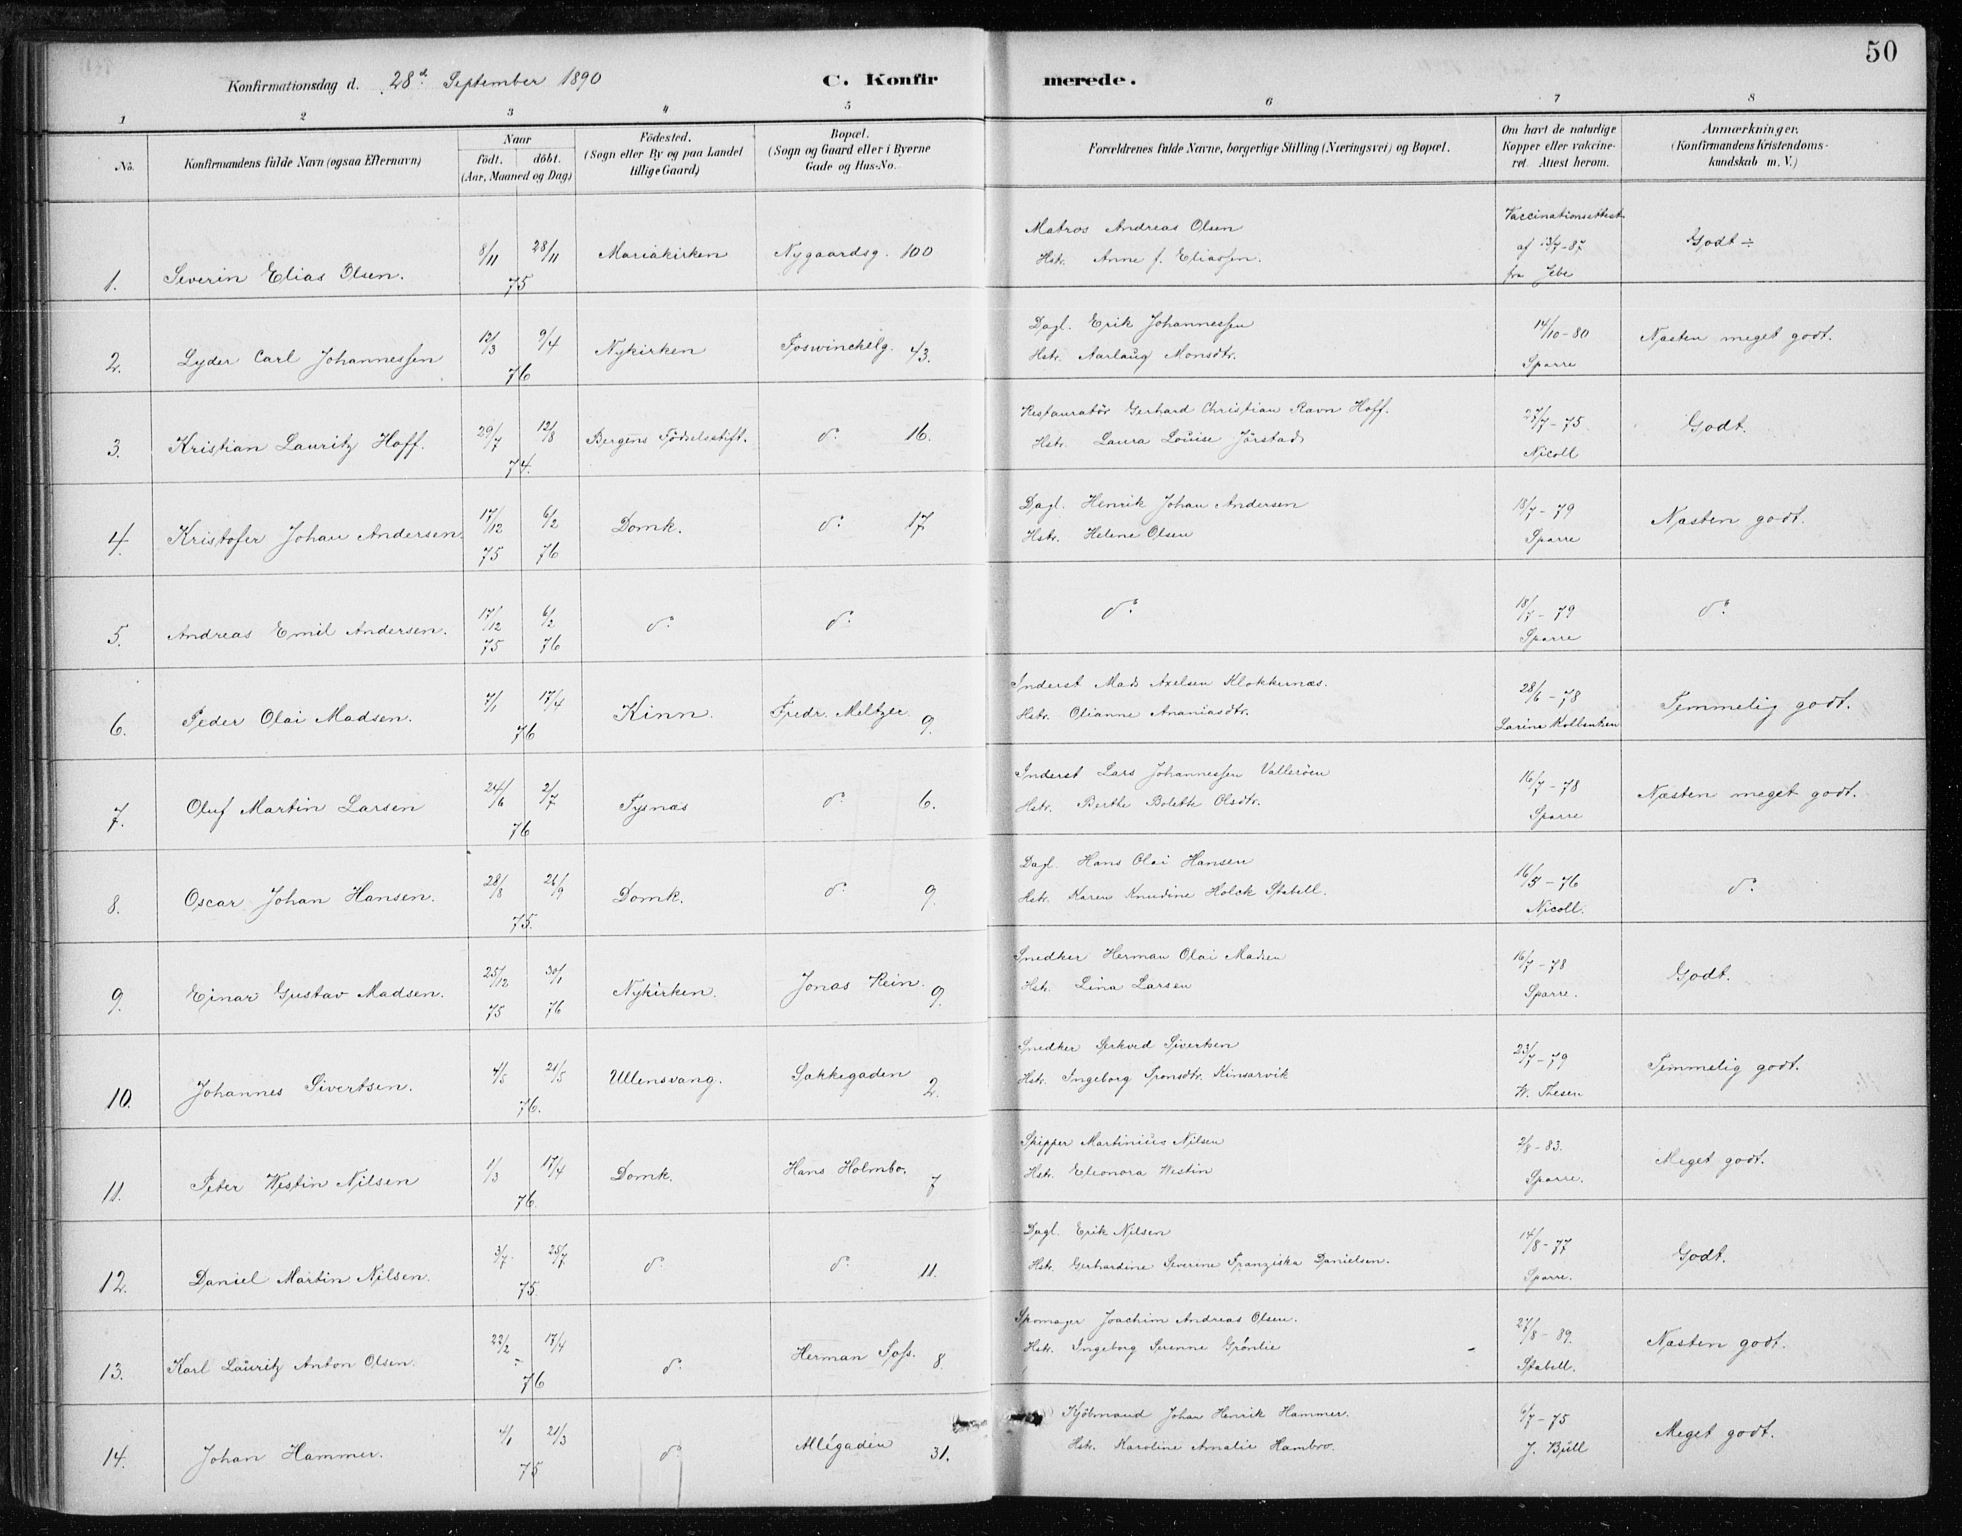 50
Konfirmationsdag d. 28d. September 1890 C. Konfir merede.
1 2 3 4 5 6 7 8
No.
Konfirmandens fulde Navn (ogsaa Efternavn)
Naar
født. døbt.
(Aar, Maaned og Dag)
Fødested.
(Sogn eller By og paa Landet
tillige Gaard)
Bopæl.
(Sogn og Gaard eller i Byerne
Gade og Hus-No.
Forældrenes fulde Navne, borgerlige Stilling (Næringsvei) og Bopæl.
Om havt de naturlige
Kopper eller vakcine-
ret. Attest herom.
Anmærkninger.
(Konfirmandens Kristendoms-
kundskab m. V.)
1. Severin Elias Olsen. 8/11 28/11 75 Mariakirken Nygaardsg. 100
Matros Andreas Olsen
Hstr. Anne f. Eliassen.
Vaccinationsattest
af 13/7-87
fra Jebe
Godt ÷
2. Lyder Carl Johannessen 12/3 9/4 76 Nykirken Foswinckelg. 43.
Dagl. Erik Johannessen
Hstr. Aarlaug Monsdtr.
14/10-80
Sparre
Næsten meget godt.
3. Kristian Lauritz Hoff. 29/7 12/8 74. Bergens Fødselsstift. do. 16.
Restauratør Gerhard Christian Ravn Hoff.
Hstr. Laura Louise Jørstad
27/7-75.
Nicoll
Godt.
4. Kristofer Johan Andersen 17/12 75 6/2 76 Domk. do. 17.
Dagl. Henrik Johan Andersen
Hstr. Helene Olsen
18/7-79
Sparre
Næsten godt.
5. Andreas Emil Andersen. 17/12 75 6/2 76 do. do.
do.
18/7-79
Sparre
do.
6. Peder Olai Madsen. 7/1 17/4 76 Kinn. Fredr. Meltzer 9.
Inderst Mads Axelsen Klokkernæs.
Hstr. Olianne Ananiasdtr.
28/6-78
Larine
Temmelig godt.
7. Oluf Martin Larsen 24/6 2/7 76 Tysnæs do. 6.
Inderst Lars Johannessen Vallerøen
Hstr. Berthe Bolette Olsdtr.
16/7-78
Sparre
Næsten meget godt.
8. Oscar Johan Hansen. 28/8 26/9 75. Domk. do. 9.
Dagl. Hans Olai Hansen
Hstr. Karen Knudine Holck Stabell.
16/5-76
Nicoll.
do.
9. Einar Gustav Madsen. 25/12 75 30/1 76 Nykirken. Jonas Rein. 9.
Snedker Herman Olai Madsen
Hstr. Lina Larsen
16/7-78
Sparre.
Godt.
10. Johannes Sivertsen. 4/5 21/5 76. Ullensvang. Sækkegaden 2.
Snedker Sivertsen
Hstr. Ingeborg Kinsarvik
23/7-79
W. Thesen
Temmelig godt.
11. Peter Westin Nilsen 1/3 17/4 76. Domk. Hans Holmbo. 7
Skipper Martinius Nilsen
Hstr. Eleonora Westin
2/8-83.
Sparre.
Meget godt.
12. Daniel Martin Nilsen. 3/7 25/7 75. do. do. 11.
Dagl. Erik Nilsen
Hstr. Gerhardine Severine Franziska Danielsen.
14/8-77
Sparre.
Godt.
13. Karl Lauritz Anton Olsen. 22/2 17/4 76 do. Herman Foss. 8.
Skomager Joachim Andreas Olsen.
Hstr. Ingeborg Serenne Grønlie
27/8-89.
Stabell.
Næsten godt.
14. Johan Hammer. 4/1 21/3 75 do. Allégaden 31.
Kjøbmand Johan Henrik Hammer.
Hstr. Karoline Amalie Hambro.
6/7-75
J. Bull
Meget godt.